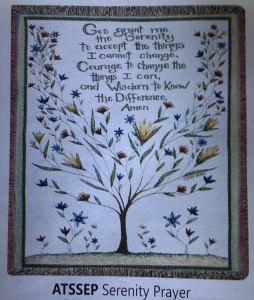 God grant me
the Serenity
to accept the things
I cannot change,
Courage to change the
things I can,
and Wisdom to Know
the Difference.
Amen
ATSSEP Serenity Prayer